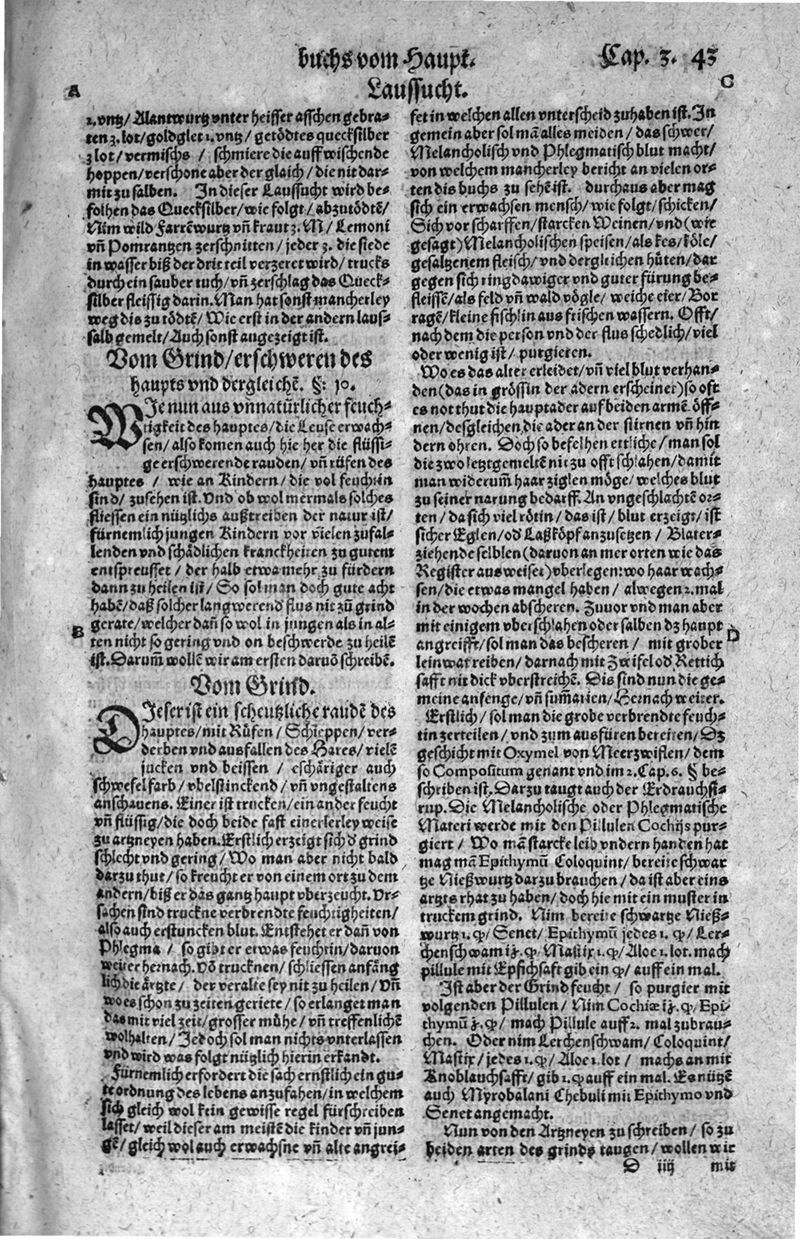 buchs vom Haupt. Cap. 3. 43
Laussucht.
A
2. vntz / Alantwurtz vnter heisser asschen gebra-
ten 2. lot / goldglet 1. vntz / getödtes quecksilber
2 lot / vermischs / schmiere die auff wischende
hoppen / verschone aber der gleich / die nit dar-
mit zu salben. In dieser Laussucht wird be-
folhen das Quecksilber / wie folgt / abzutödtē /
Nim wild Farrēwurtz vñ kraut 2. M / Lemoni
vñ Pomrantzen zerschnitten / jeder 2. die siede
in wasser biß der drit teil verzeret wird / trucks
durch ein sauber tuch / vñ zerschlag das Queck-
silber fleissig darin. Man hat sonst mancherley
weg dis zu tödtē / Wie erst in der andern laus-
salb gemelt / Auch sonst angezeigt ist.
Vom Grind / erschweren des
haupts vnd dergleichē. §. 10.
WJe nun aus vnnatürlicher feuch-
tigkeit des hauptes / die Leuse erwach-
sen / also komen auch hie her die flüssi-
ge erschwerende rauden / vñ rüfen des
hauptes / wie an Kindern / die vol feuchtin
sind / zusehen ist. Vnd ob wol mermals solches
fliessen ein nützlichs außtreiben der natur ist /
fürnemlich jungen Kindern vor vielen zufal-
lenden vnd schädlichen kranckheiten zu gutem
entspreusset / der halb etwa mehr zu fürdern
dann zu heilen ist / So sol man doch gute acht
habē / daß solcher langwerend flus nit zū grind
gerate / welcher dañ so wol in jungen als in al-
B
ten nicht so gering vnd on beschwerde zu heilē
ist. Darum̃ wollē wir am ersten daruō schreibē.
Vom Grind.
DJeser ist ein scheutzliche raudē des
hauptes / mit Rüfen / Schieppen / ver-
derben vnd ausfallen des Hares / vielē
jucken vnd beissen / eschäriger auch
schwefelfarb / vbelstinckend / vñ vngestaltens
anschauens. Einer ist trucken / ein ander feucht
vñ flüssig / die doch beide fast einerlerley weise
zu artzneyen haben. Erstlich erzeigt sich d' grind
schlecht vnd gering / Wo man aber nicht bald
darzu thut / so kreucht er von einem ort zu dem
andern / biß er das gantz haupt vberzeucht. Vr-
sachen sind truckne verbrendte feuchtigheiten /
also auch erstuncken blut. Entstehet er dañ von
Phlegma / so gibt er etwas feuchtin / daruon
weiter hernach. Vō trucknen / schliessen anfäng
lich die ärtzte / der veralte sey nit zu heilen / Vñ
wo es schon zu zeiten geriete / so erlanget man
das mit viel zeit / grosser mühe / vñ treffenlichē
wolhalten / Jedoch sol man nichts vnterlassen
vnd wird was folgt nützlich hierin erkandt.
Fürnemlich erfordert die sach ernstlich ein gu-
te ordnung des lebens anzufahen / in welchem
sich gleich wol kein gewisse regel fürschreiben
lasset / weil dieser am meistē die kinder vñ jun-
gē / gleich wol auch erwachsne vñ alte angrei-
C
fet in welchen allen vnterscheid zuhaben ist. In
gemein aber sol mā alles meiden / das schwer /
Melancholisch vnd Phlegmatisch blut macht /
von welchem mancherley bericht an vielen or-
ten dis buchs zu sehē ist. durchaus aber mag
sich ein erwachsen mensch / wie folgt / schicken /
Sich vor scharffen / starcken Weinen / vnd (wie
gesagt) Melancholischen speisen / als kes / köle /
gesaltzenem fleisch / vnd dergleichen hüten / dar
gegen sich ring dawiger vnd guter fürung be-
fleissē / als feld vñ wald vögle / weiche eier / Bor
ragē / kleine fischlin aus frischen wassern. Offt /
nach dem die person vnd der flus schedlich / viel
oder wenig ist / purgieren.
Wo es das alter erleidet / vñ viel blut verhan-
den (das in grössin der adern erscheinet) so oft
es not thut die hauptader auf beiden armē öff-
nen / desgleichen die ader an der stirnen vñ hin
dern ohren. Doch so befelhen ettliche / man sol
die zwo letztgemeltē nit zu offt schlahen / damit
man widerum̃ haar ziglen möge / welches blut
zu seiner narung bedarff. An vngeschlachtē or-
ten / da sich viel rötin / das ist / blut erzeigt / ist
sicher Eglen / od' Laßköpf anzusetzen / Blater-
ziehende selblen (daruon an mer orten wie das
Register ausweiset) vberlegen: wo haar wach-
sen / die etwas mangel haben / alwegen 2. mal
in der wochen abscheren. Zuvor vnd man aber
mit einigem vberschlahen oder salben dz haupt
D
angreifft / sol man das bescheren / mit grober
leinwat reiben / darnach mit Zwifel od' Rettich
safft nit dick vberstreichē. Dis sind nun die ge-
meine anfenge / vñ sum̃arien / Hernach weiter.
Erstlich / sol man die grobe verbrendte feuch-
tin zerteilen / vnd zum ausfüren bereiten / Dz
geschicht mit Oxymel von Meerzwiflen / dem
so Compositum genant vnd im 2. Cap. 6. § be-
schriben ist. Darzu taugt auch der Erdrauchsi-
rup. Die Melancholische oder Phlegmatische
Materi werde mit den Pillulen Cochijs pur-
giert / Wo mā starcke leib vndern handen hat
mag mā Epithymū Coloquint / bereite schwar
tze Nießwurtz darzu brauchen / da ist aber eins
artzts rhat zu haben / doch hie mit ein muster in
truckem grind. Nim bereite schwartze Nieß-
wurtz 1. q̃ / Senet / Epithymū jedes 1. q̃ / Ler-
chenschwam ij. q̃. Mastix 1. q̃ / Aloe 1. lot. mach
pillule mit Epfichsaft gib ein q̃ / auff ein mal.
Ist aber der Grind feucht / so purgier mit
volgenden Pillulen / Nim Cochiæ ij. q̃ Epi-
thymū j. q̃ / mach Pillule auff 2. mal zubrau-
chen. Oder nim Lerchenschwam / Coloquint /
Mastix / jedes 1. q̃ / Aloe 1. lot / machs an mit
Knoblauchsafft / gib 1. q̃ auff ein mal. Es nützē
auch Myrobalani Chebuli mit Epithymo vnd
Senet angemacht.
Nun von den Artzneyen zu schreiben / so zu
beiden arten des grinds taugen / wollen wir
D iiij mit